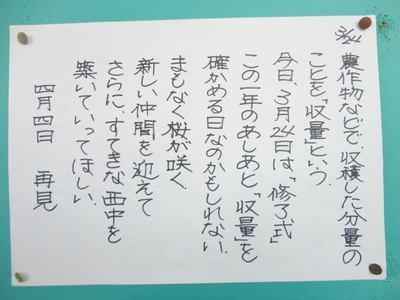 3/24
農作物などで、収穫した分量の
ことを「収量」という。
今日、3月24日は、「修了式」
この一年のあしあと、「収量」を
確かめる日なのかもしれない。
まもなく桜が咲く。
新しい仲間を迎えて
さらに、すてきな西中を
築いていってほしい。
四月四日 再見